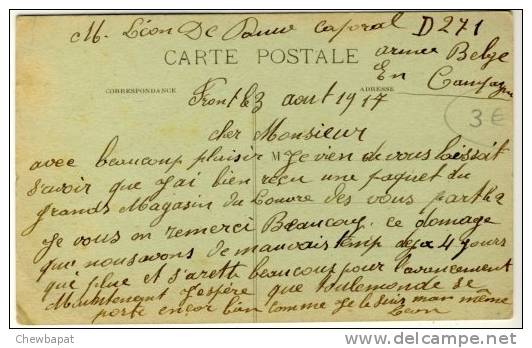 M. Léon De caporal D271
CARTE POSTALE
armée Belge
En Campagne
CORRESPONDANCE
ADRESSE
Front le 3 aout 1917
3€
cher Monsieur
avec beaucoup plaisir Je vien de vous laissait
s'avoir que J'ai bien reçu une paquet du
grands Magasin du Louvre des vous part
Je vous en remerci Beaucoup ce domage
que nous avons de mauvais temp deja 4 Jours
qui plue et s'arett beaucoup pour l'avancement
Maintenant J'espère que toulemonde se
porte encor bien comme Je le suis moi même
Léon
Chewbapat
www.delcampe.net